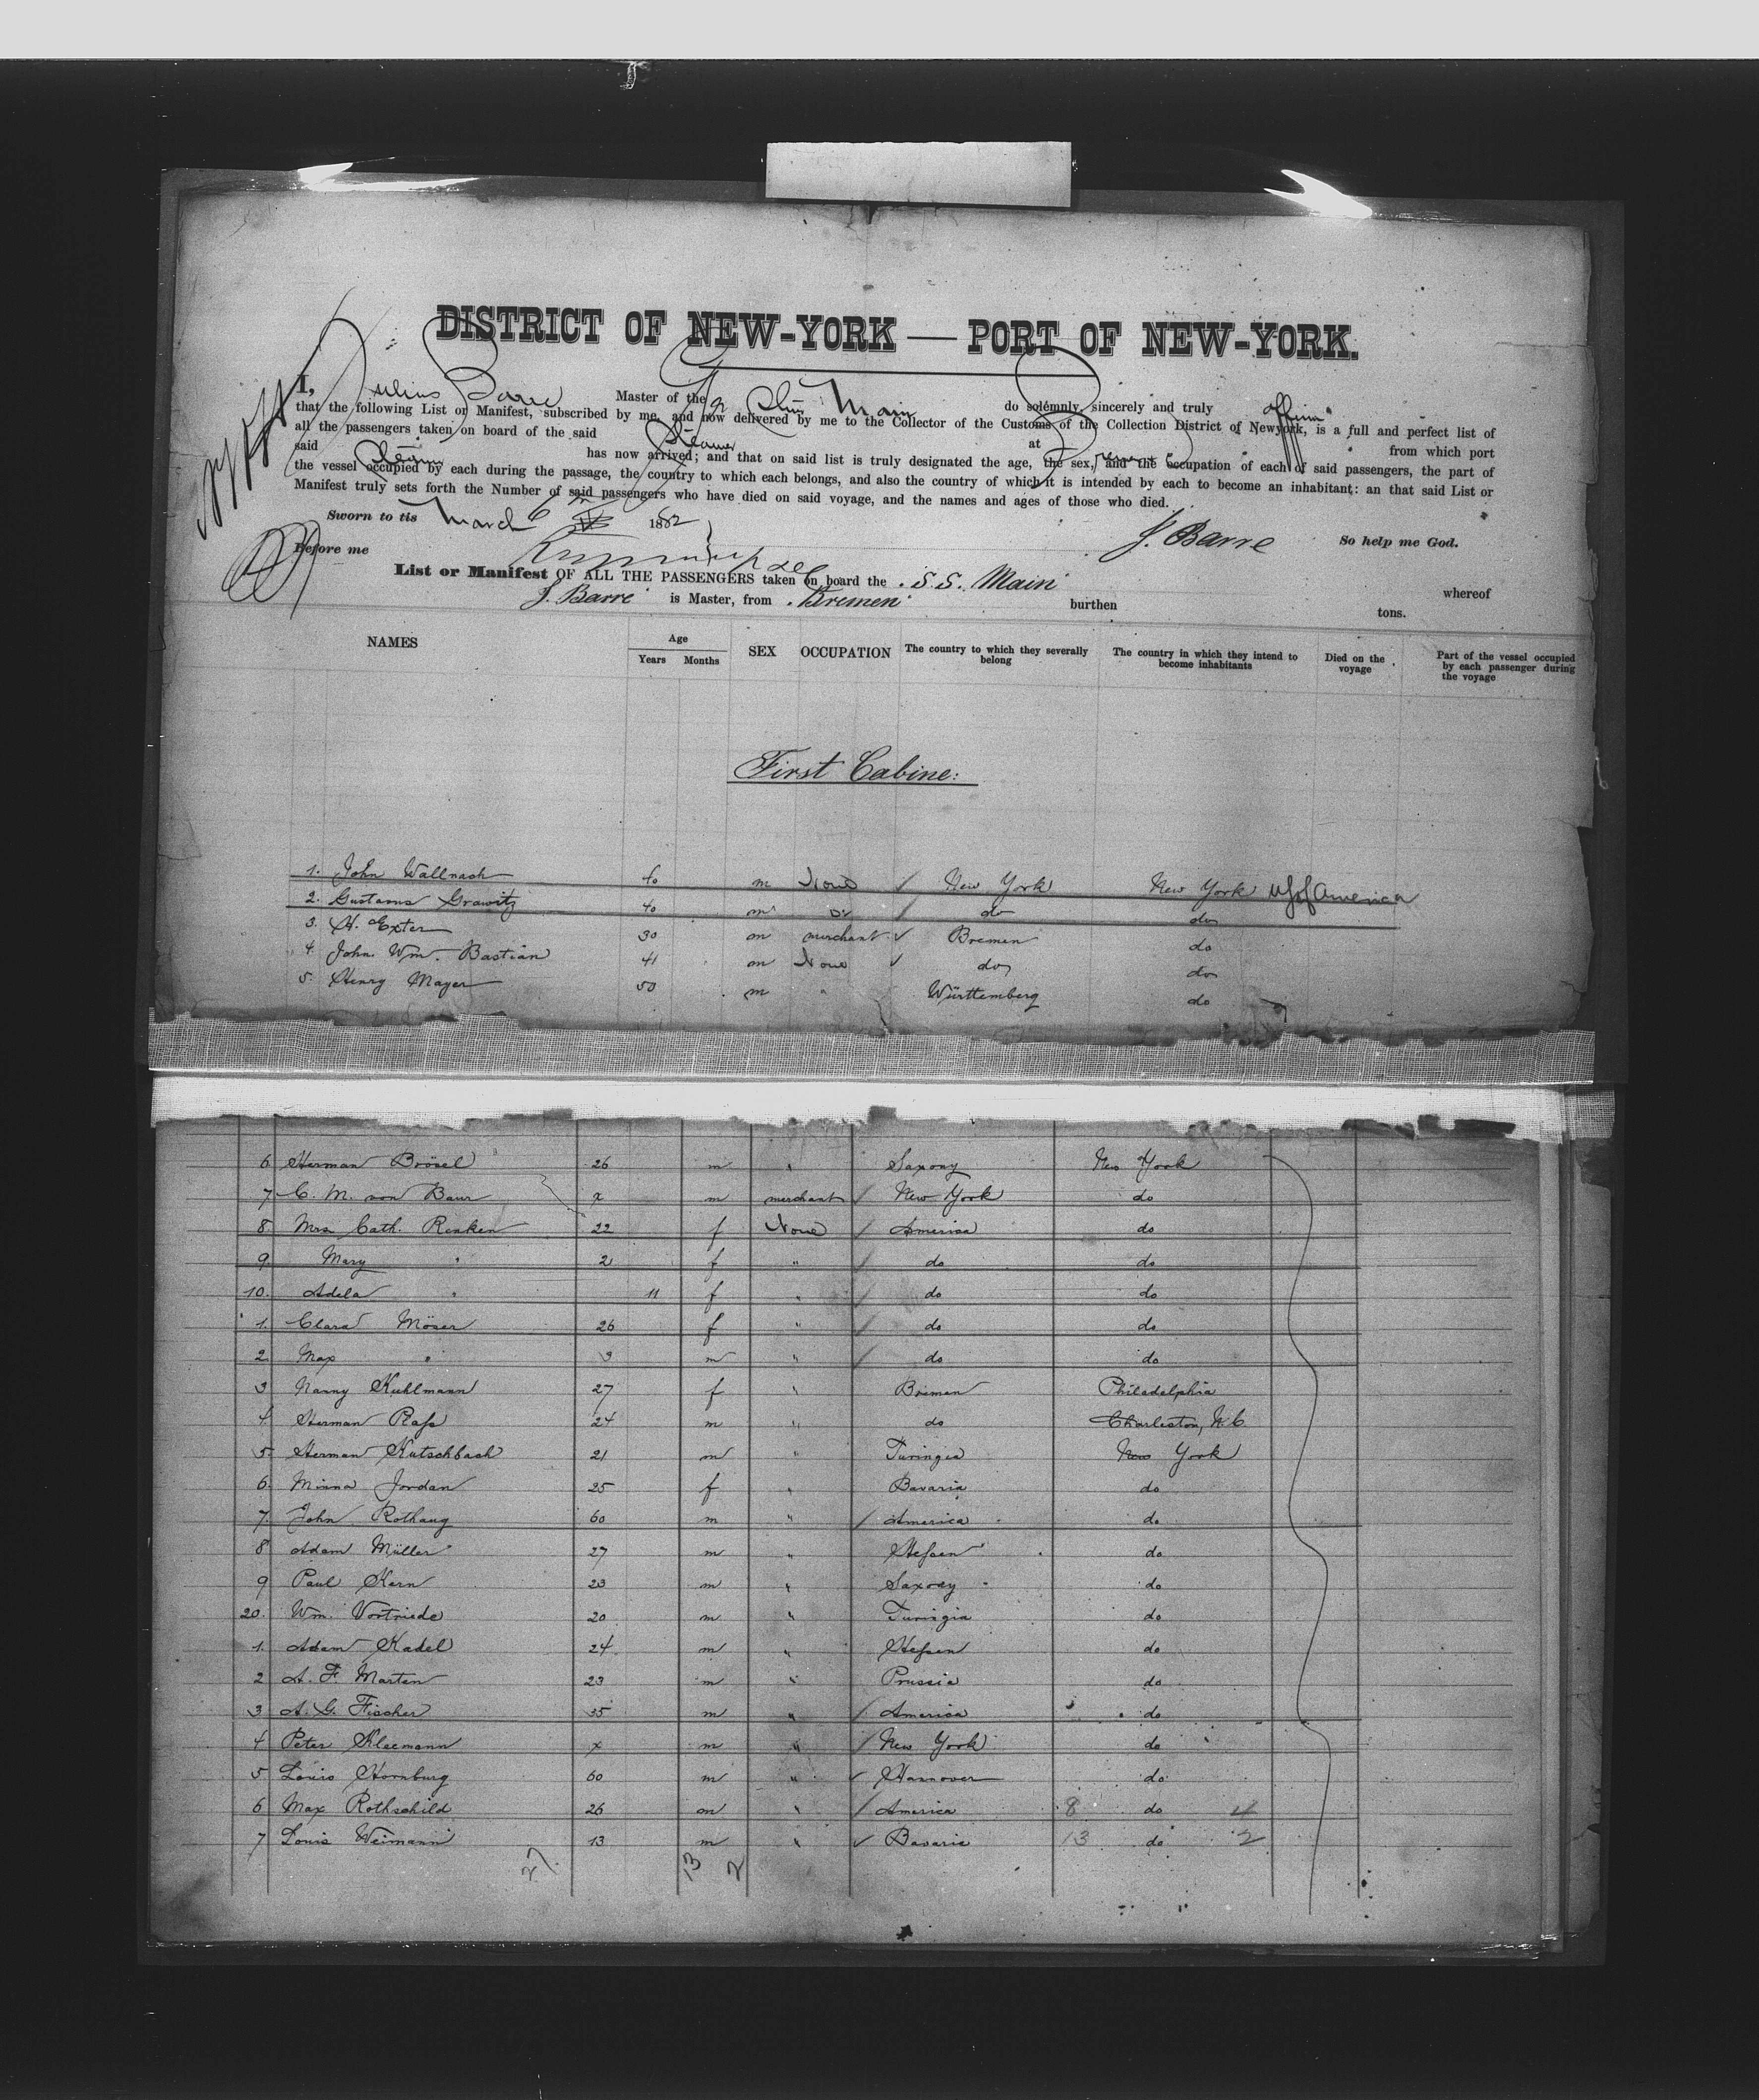 DISTRICT OF NEW-YORK — PORT OF NEW-YORK.
I, Julius Barre Master of the Main do solemnly, sincerely and truly affirm
that the following List or Manifest, subscribed by me, and now delivered by me to the Collector of the Customs of the Collection District of Newyork, is a full and perfect list of
all the passengers taken on board of the said Steamer at Bremen from which port
said Steamer has now arrived; and that on said list is truly designated the age, the sex, and the occupation of each of said passengers, the part of
the vessel occupied by each during the passage, the country to which each belongs, and also the country of which it is intended by each to become an inhabitant: an that said List or
Manifest truly sets forth the Number of said passengers who have died on said voyage, and the names and ages of those who died.
Sworn to tis March 6 1882
J. Barre So help me God.
Before me
List or Manifest OF ALL THE PASSENGERS taken on board the S.S. Main whereof
J. Barre is Master, from Bremen burthen tons.
NAMES Age Years Months SEX OCCUPATION The country to which they severally belong The country in which they intend to become inhabitants Died on the voyage Part of the vessel occupied by each passenger during the voyage
First Cabine:
1. John Wallnash 40 m None ✓ New York New York US of America
2. Gustavus Grawitz 40 m Do ✓ do do
3. H. Exter 30 m merchant ✓ Bremen do
4. John Wm. Bastian 41 m None ✓ do do
5. Henry Mayer 50 m " Württemberg do
6 Herman Brösel 26 m " Saxony New York
7 C. M. von Baur x m merchant ✓ New York do
8 Mrs Cath. Renken 22 f None ✓ America do
9 Mary " 2 f " ✓ do do
10. Adela " 11 f " ✓ do do
1. Clara Möser 26 f " ✓ do do
2 Max " 3 m " ✓ do do
3 Nanny Kuhlmann 27 f " Bremen Philadelphia
4. Herman Plass 24 m " do Charleston, N.C.
5. Herman Kutschbach 21 m " Turingia New York
6. Minna Jordan 25 f " Bavaria do
7. John Rothaug 60 m " ✓ America do
8 Adam Müller 27 m " Hessen do
9 Paul Kern 23 m " Saxony do
20. Wm. Vortriede 20 m " Turingia do
1. Adam Kadel 24 m " Hessen do
2 A. F. Marten 23 m " Prussia do
3 A. G. Fischer 35 m " ✓ America do
4 Peter Kleemann x m " ✓ New York do
5 Louis Hornburg 60 m " ✓ Hannover do
6 Max Rothschild 26 m " ✓ America 8 do 4
7 Louis Weimann 13 m " ✓ Bavaria 13 do 2
27. 13 2